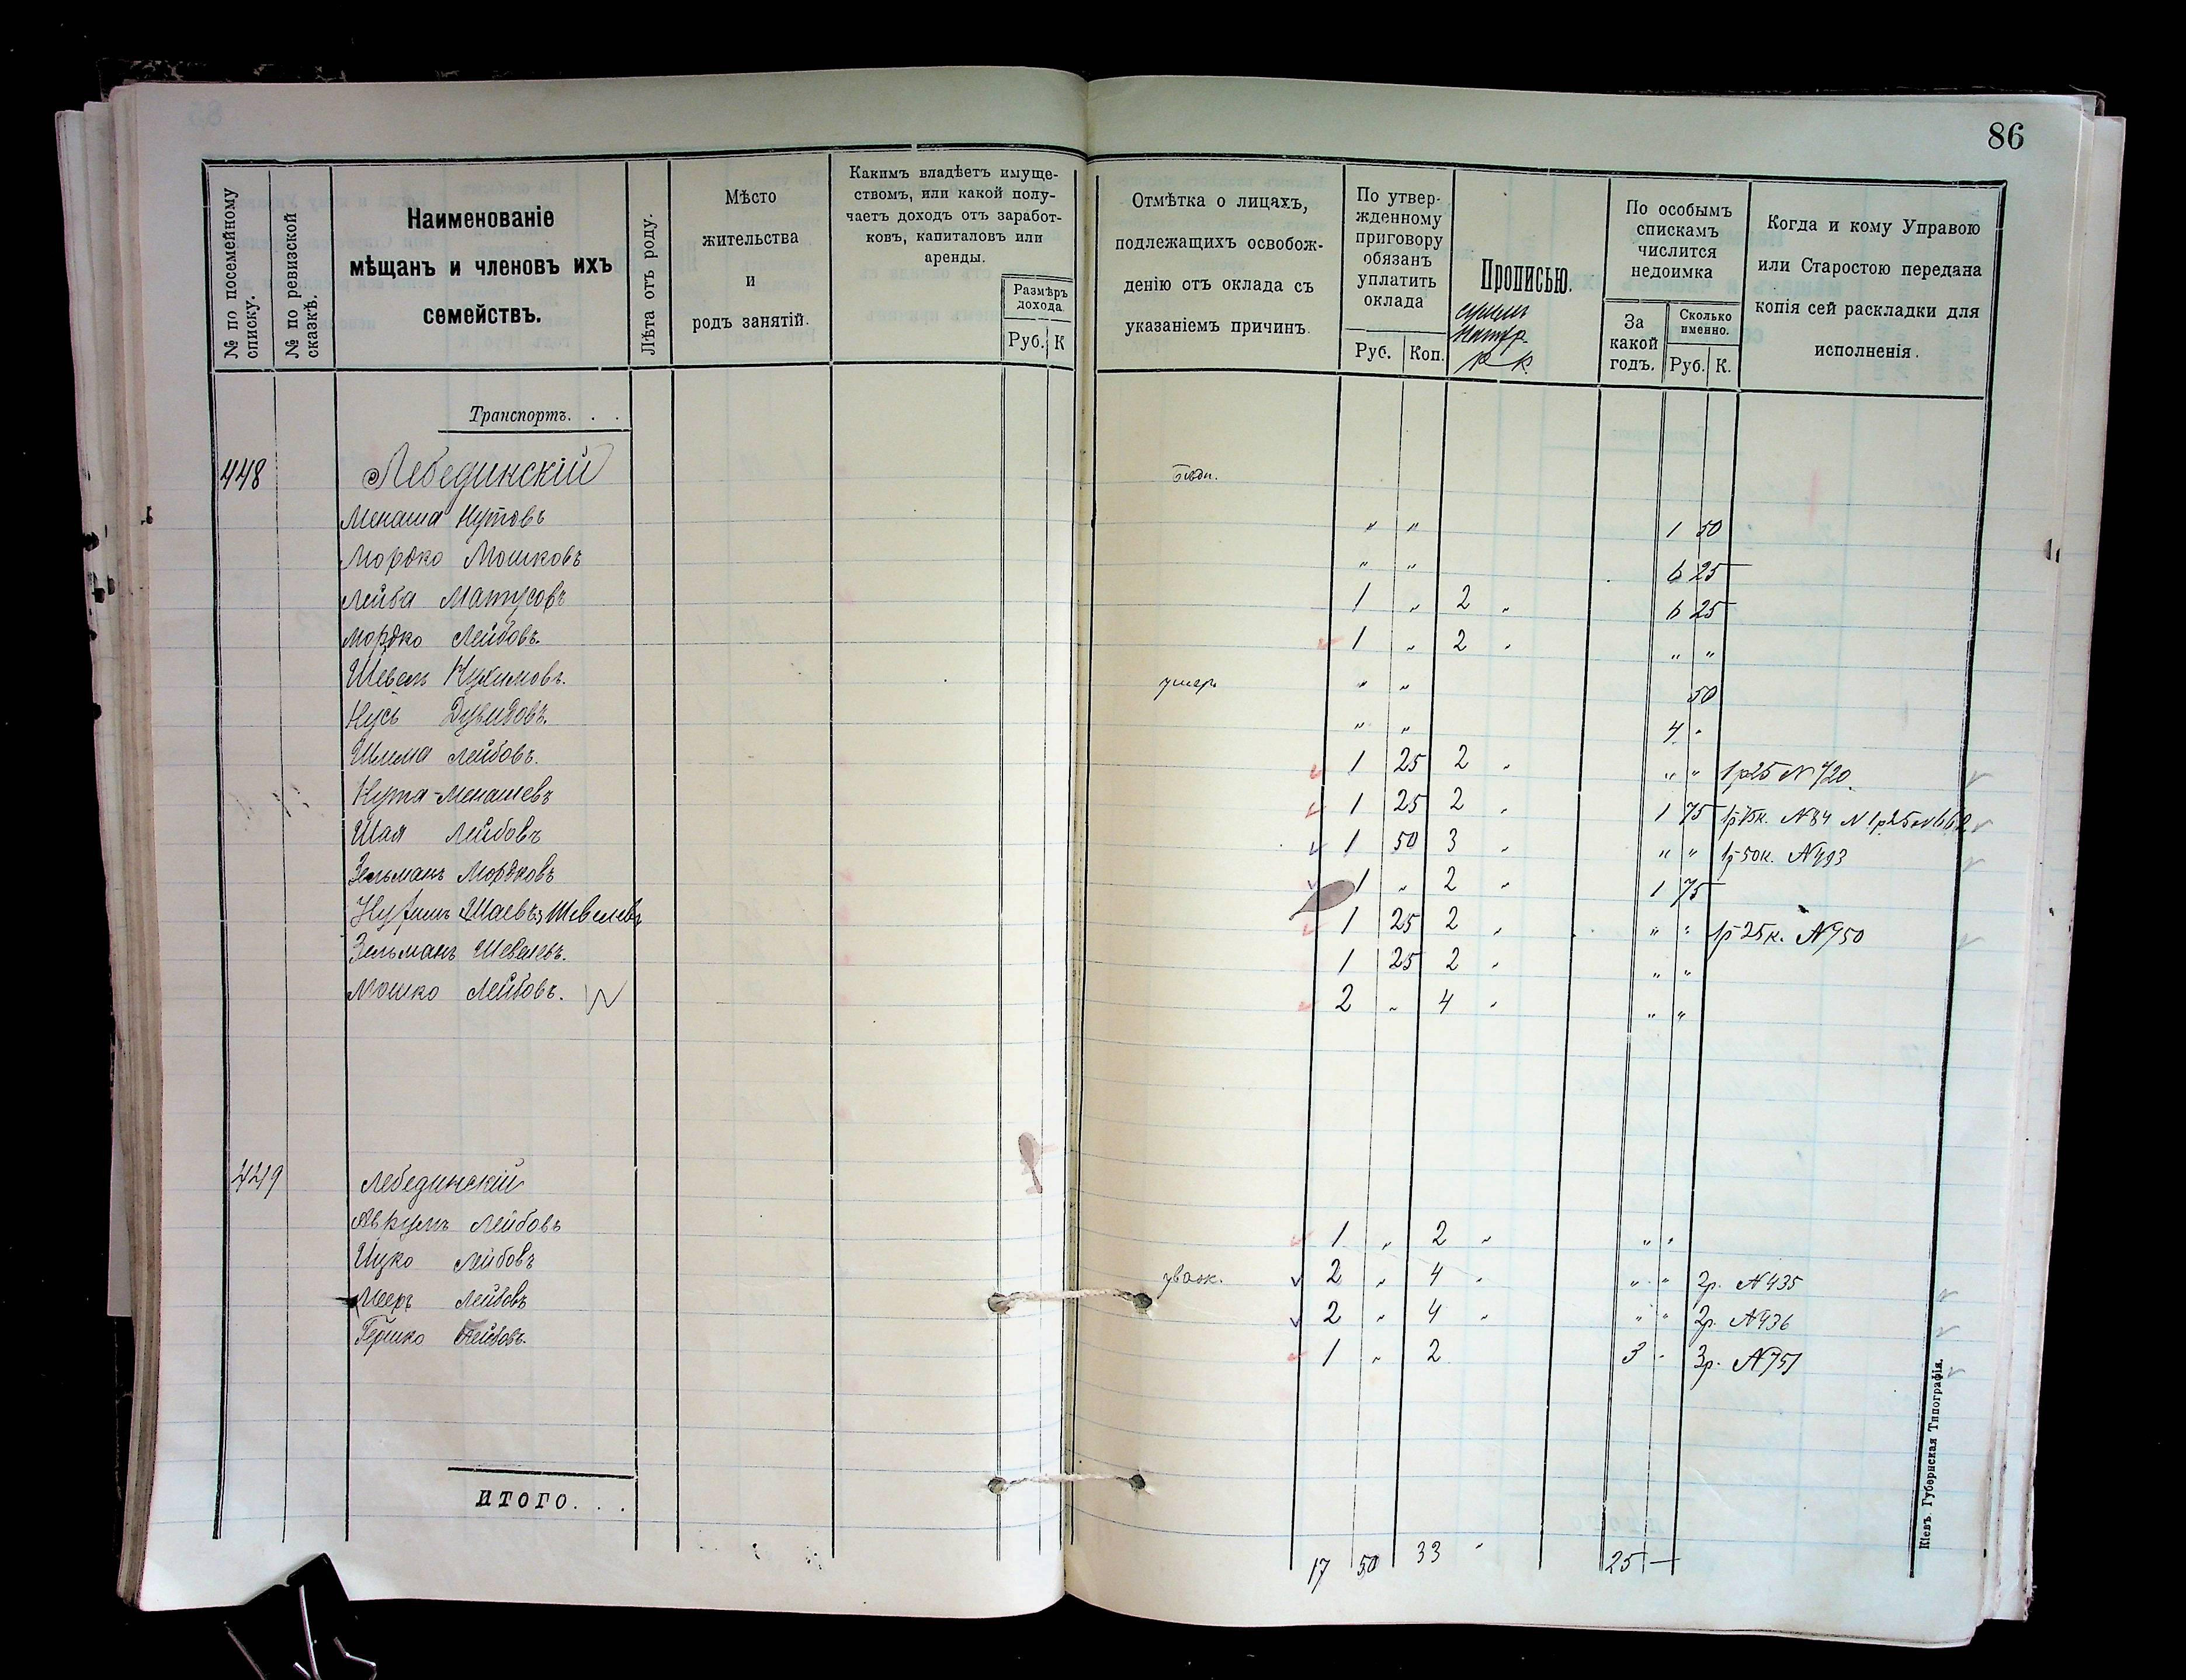 86
№ по посемейному списку.
№ по ревизской сказкѣ.
Наименованіе мѣщанъ и членовъ ихъ семействъ.
Лѣта отъ роду.
Мѣсто жительства и родъ занятій.
Какимъ владѣетъ имуще-
ствомъ, или какой полу-
чаетъ доходъ отъ заработ-
ковъ, капиталовъ или
аренды.
Размѣръ дохода
Руб. К
Отмѣтка о лицахъ,
подлежащихъ освобож-
денію отъ оклада съ
указаніемъ причинъ.
По утвер-
жденному
приговору
обязанъ
уплатить
оклада
Руб. Коп.
Прописью.
р к.
По особымъ
спискамъ
числится
недоимка
За какой годъ.
Сколько именно.
Руб. К.
Когда и кому Управою
или Старостою передана
копія сей раскладки для
исполненія.
Транспортъ. . .
448 Лебединскій бѣдн.
Менаша Нутовъ " " 1 50
Мордко Мошковъ " " 6 25
Лейба Матусовъ 1 " 2 " 6 25
Мордко Лейбовъ. 1 " 2 " " "
Шевель умер. " " 50
Нусь 4 "
Шлема Лейбовъ. 1 25 2 " " " 1р25 N 720
Нута-Менашевъ 1 25 2 " 1 75 N 84
Шая Лейбовъ 1 50 3 " " " 1р50к. N 493
Зельманъ Мордковъ 1 " 2 " 1 75
Шаевъ Шевелевъ 1 25 2 " " " 1р25к. N 950
Зельманъ Шевелевъ. 1 25 2 " " "
Мошко Лейбовъ. 2 " 4 " " "
449 Лебединскій
Лейбовъ 1 " 2 " " "
Ицко Лейбовъ 2 " 4 " " " 2р. N 435
Мееръ Лейбовъ 2 " 4 " " " 2р. N 436
Гершко Лейбовъ. 1 " 2 3 " 3р. N 751
ИТОГО. . .
17 50 33 " 25 —
Кіевъ. Губернская Типографія.